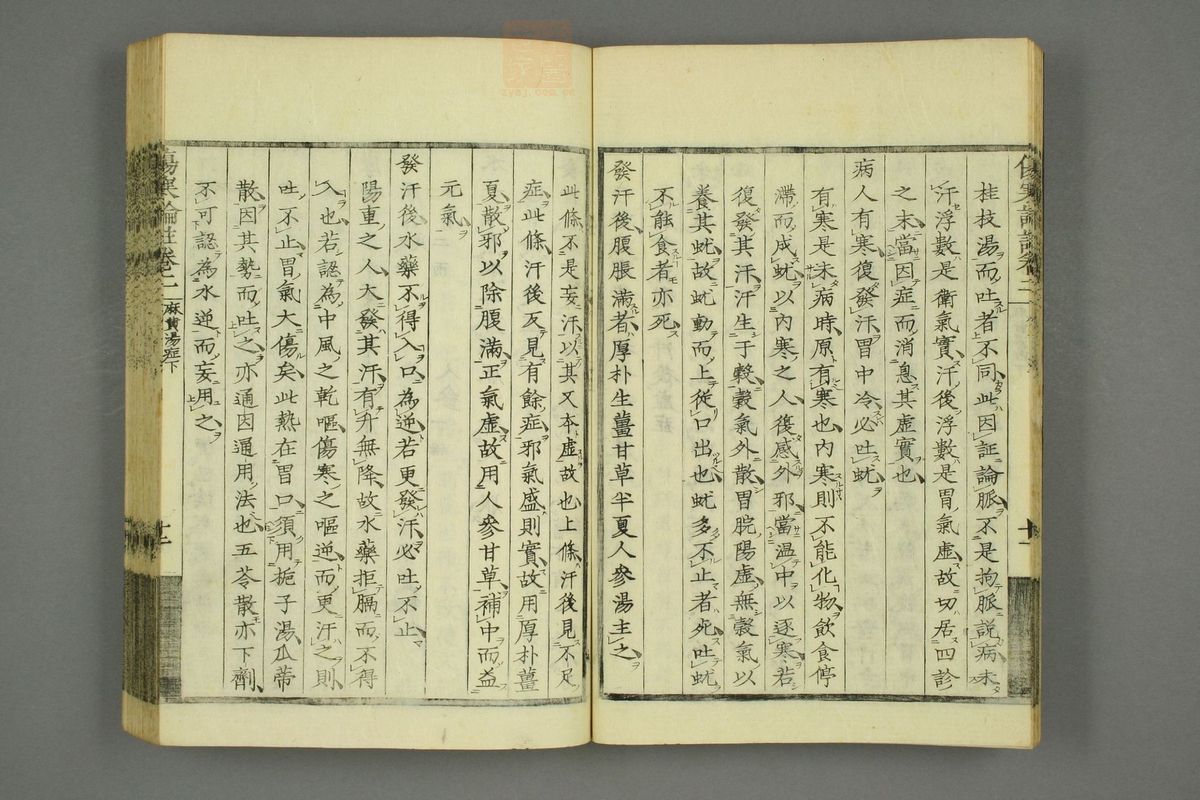 桂枝湯而吐者不同此因証論脈不是拘脈説病未
汗浮數是衛氣實汗後浮數是胃氣虚故切居四診
之末當因症而消息其虚實也
病人有寒復發汗胃中冷必吐蚘
有寒是未病時原有寒也內寒則不能化物飲食停
滯而成蚘以內寒之人復感外邪當温中以逐寒若
復發其汗汗生于穀穀氣外散胃脘陽虚無穀氣以
養其蚘故蚘動而上從口出也蚘多不止者死吐蚘
不能食者亦死
發汗後腹脹滿者厚朴生薑甘草半夏人參湯主之
此條不是妄汗以其又本虚故也上條汗後見不足
症此條汗後反見有餘症邪氣盛則實故用厚朴薑
夏散邪以除腹滿正氣虚故用人參甘草補中而益
元氣
發汗後水藥不得入口為逆若更發汗必吐不止
陽重之人大發其汗有升無降故水藥拒膈而不得
入也若認為中風之乾嘔傷寒之嘔逆而更汗之則
吐不止胃氣大傷矣此熱在胃口須用梔子湯瓜蒂
散因其勢而吐之亦通因通用法也五苓散亦下劑
不可認為水逆而妄用之
傷寒論註卷二
麻黃湯症下